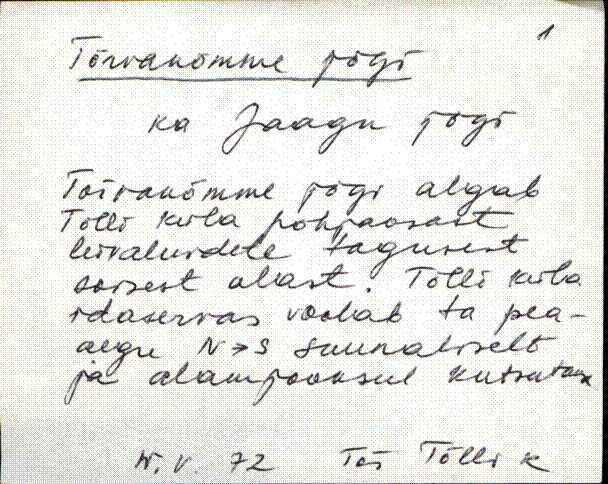 1
Tõrvanõmme jõgi
ka Jaagu jõgi
Tõrvanõmme jõgi algab
Tõlli küla põhjaosast
leivaluidete tagusest
soisest alast. Tõlli küla
idaservas voolab ta pea-
aegu N→S suunaliselt
ja alamjooksul kutsutakse
W. V. 72 Tõlli k